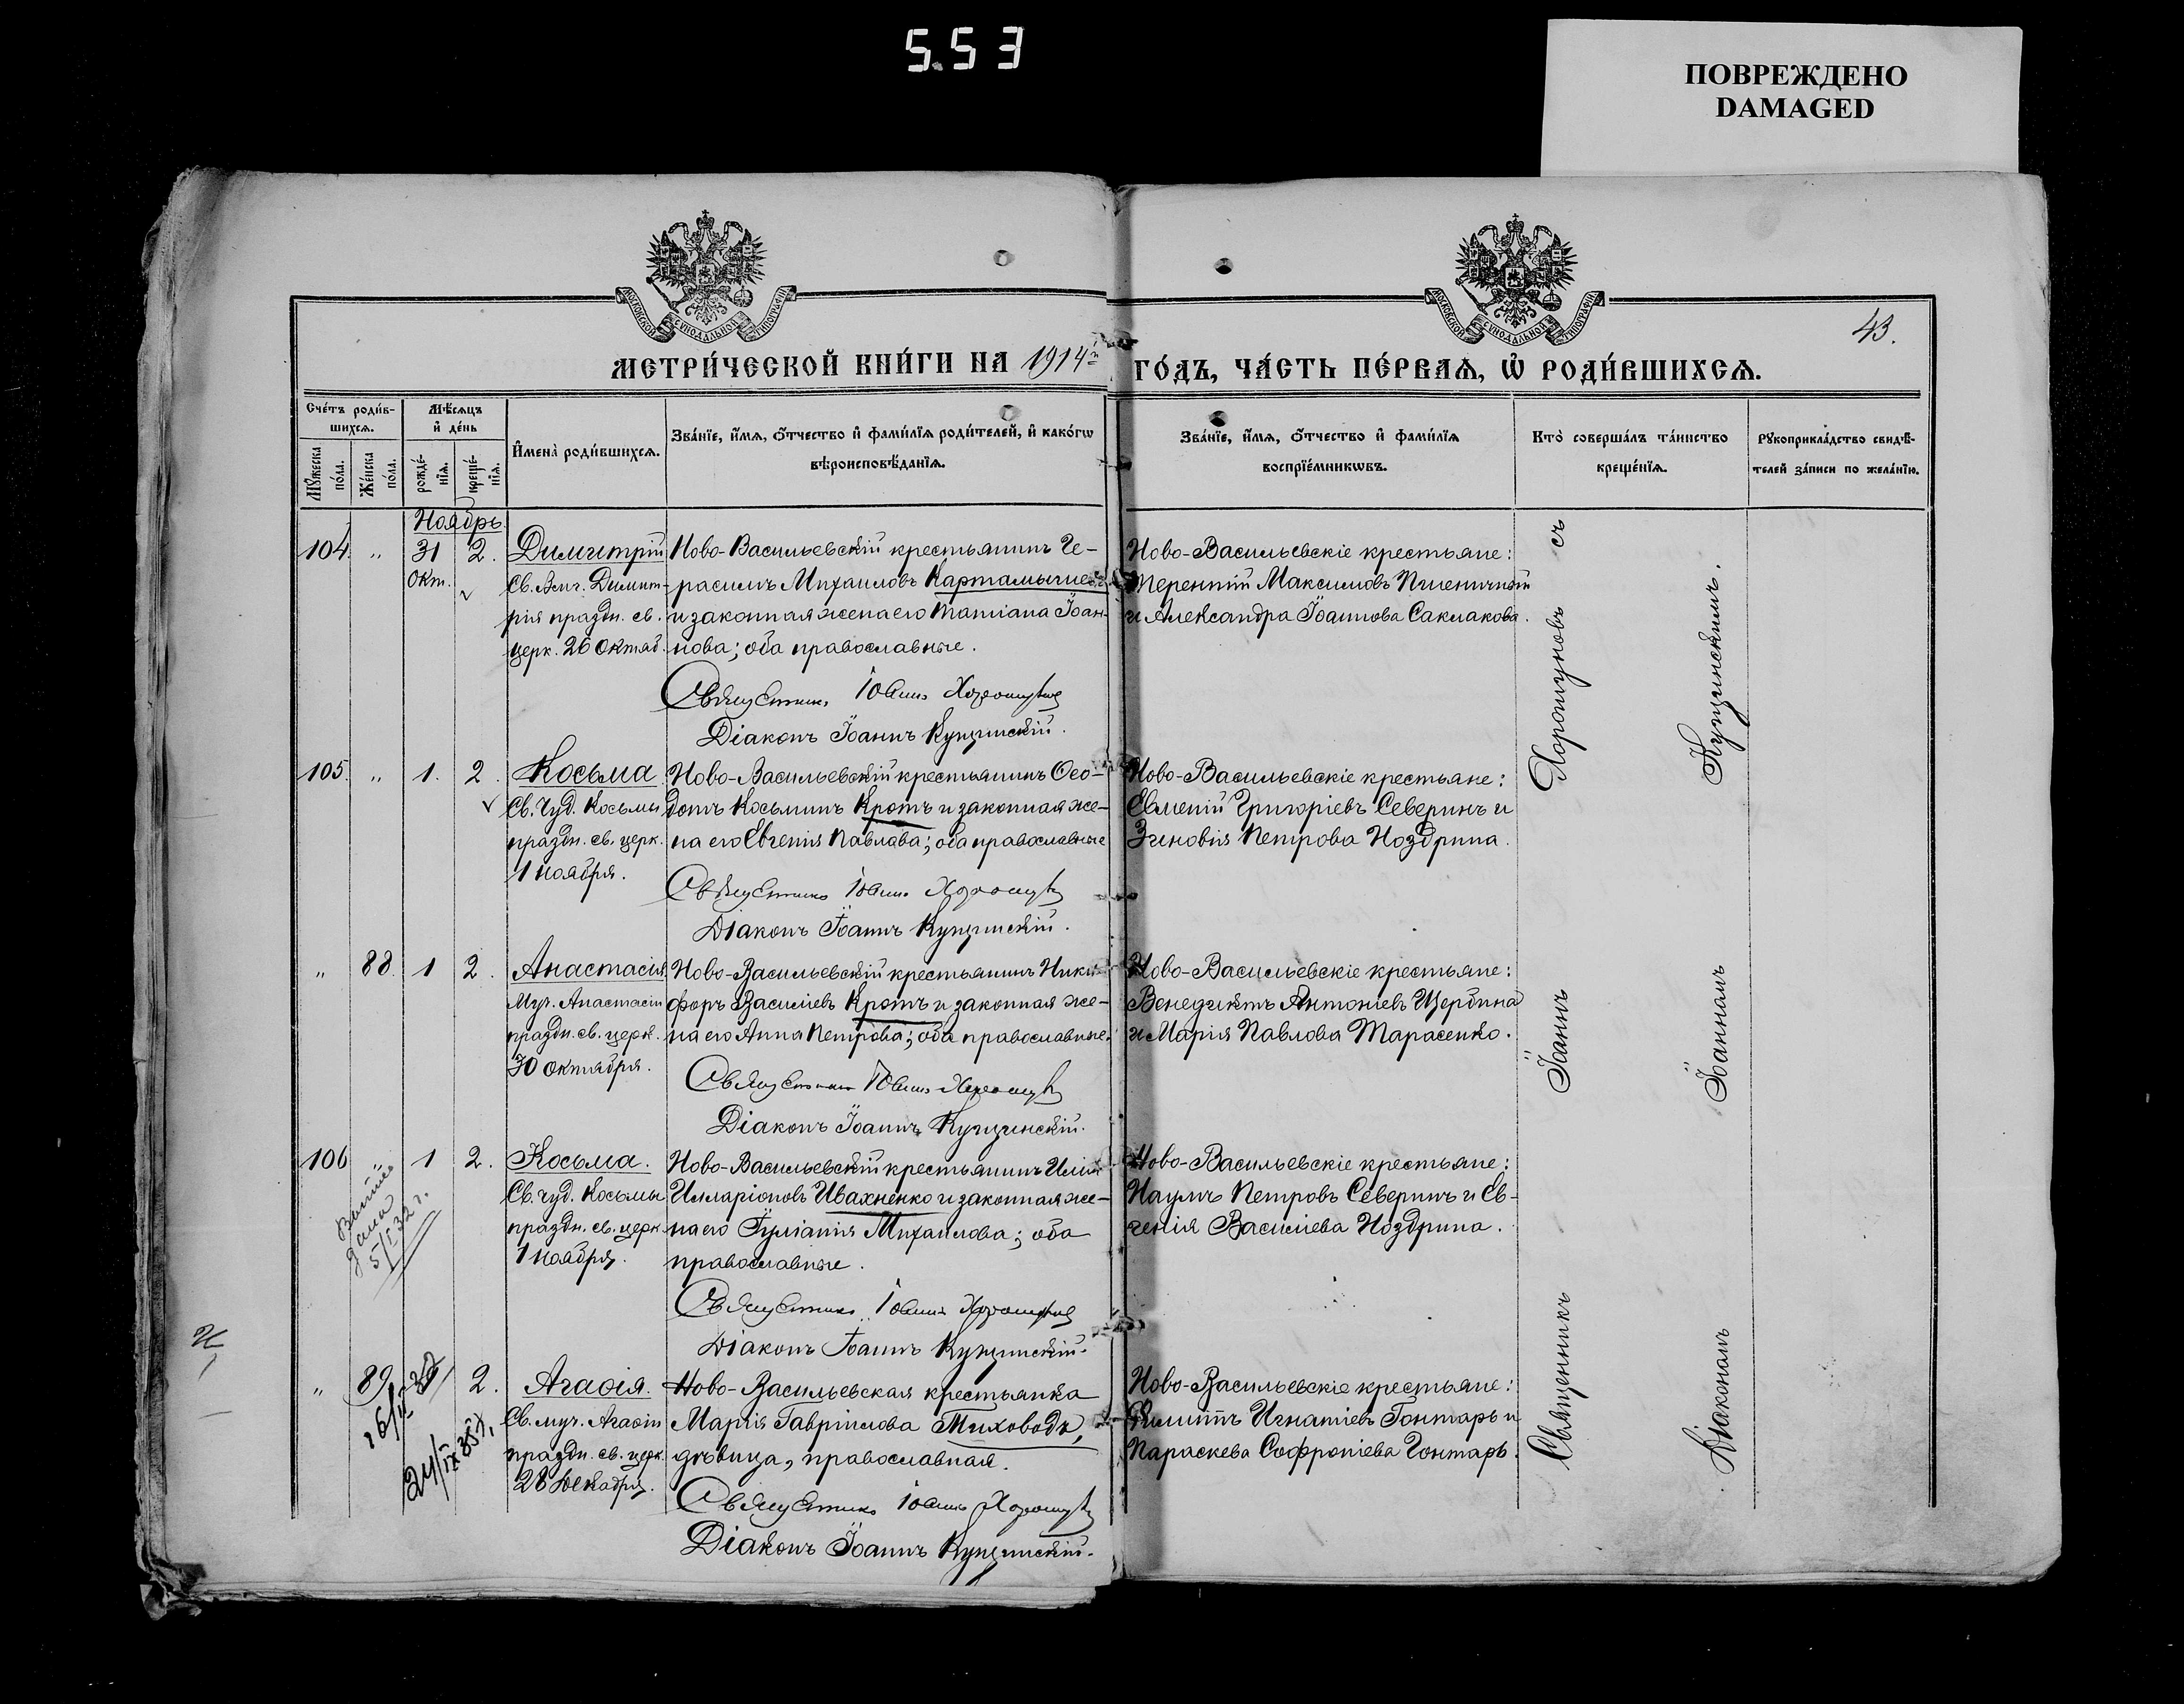 5.53
ПОВРЕЖДЕНО
DAMAGED
МОСКОВСКОЙ СѴНОДАЛЬНОЙ ТИПОГРАФІИ
МОСКОВСКОЙ СѴНОДАЛЬНОЙ ТИПОГРАФІИ
43.
МЕТРИ́ЧЕСКОЙ КНИ́ГИ НА 1914й ГО́ДЪ, ЧА́СТЬ ПЕ́РВАѦ, Ѽ РОДИ́ВШИХСѦ.
Сче́тъ роди́в-
шихсѧ.
Мꙋ́жеска
по́ла.
Же́нска
по́ла.
Мѣ́сѧцъ
и҆ де́нь
рожде́-
нїѧ.
креще́-
нїѧ.
И҆мена̀ роди́вшихсѧ.
Зва́нїе, и҆́мѧ, ѻ҆́тчество и҆ фами́лїѧ роди́телей, и҆ како́гѡ
вѣроисповѣ́данїѧ.
Зва́нїе, и҆́мѧ, ѻ҆́тчество и҆ фами́лїѧ
воспрїе́мникѡвъ.
Кто̀ соверша́лъ та́инство
креще́нїѧ.
Рꙋкоприкла́дство свидѣ́-
телей за́писи по жела́нїю.
Ноябрь.
104. " 31 2.
Окт.
Димитрій
Св. Вмч. Димит-
рія праздн. св.
церк. 26 Октяб.
Ново-Васильевскій крестьянинъ Ге-
расимъ Михаиловъ
и законная жена его Татіана Іоан-
нова; оба православные.
Священникъ Іоаннъ Хорошуновъ
Діаконъ Іоаннъ Купчинскій.
Ново-Васильевскіе крестьяне:
Терентій Максимовъ Пшеничный
и Александра Іоаннова Сакмакова.
105. " 1. 2.
Косьма
Св. Чуд. Косьмы
праздн. св. церк.
1 ноября.
Ново-Васильевскій крестьянинъ Ѳео-
дотъ Косьминъ Кротъ и законная же-
на его Евгенія Павлова; оба православные
Священникъ Іоаннъ Хорошуновъ
Діаконъ Іоаннъ Купчинскій.
Ново-Васильевскіе крестьяне:
Евменій Григоріевъ Северинъ и
Зиновія Петрова Ноздрина.
" 88. 1 2.
Анастасія
Муч. Анастасіи
праздн. св. церк.
30 октября.
Ново-Васильевскій крестьянинъ Ники-
форъ Василіевъ Кротъ и законная же-
на его Анна Петрова; оба православные.
Священникъ Іоаннъ Хорошуновъ
Діаконъ Іоаннъ Купчинскій.
Ново-Васильевскіе крестьяне:
Венедиктъ Антоніевъ Щербина
и Марія Павлова Тарасенко.
106 " 1 2.
дана
5/I 32 г.
Косьма.
Св. чуд. Косьмы
праздн. св. церк.
1 ноября.
Ново-Васильевскій крестьянинъ Илія
Илларіоновъ Ивахненко и законная же-
на его Іуліанія Михаилова; оба
православные.
Священникъ Іоаннъ Хорошуновъ
Діаконъ Іоаннъ Купчинскій.
Ново-Васильевскіе крестьяне:
Наумъ Петровъ Северинъ и Ев-
генія Василіева Ноздрина.
" 89. 2.
Агаѳія.
Св. муч. Агаѳіи
праздн. св. церк.
28 Декабря.
Ново-Васильевская крестьянка
Марія Гавріилова Тиховодъ,
дѣвица, православная.
Священникъ Іоаннъ Хорошуновъ
Діаконъ Іоаннъ Купчинскій.
Ново-Васильевскіе крестьяне:
Филиппъ Игнатіевъ Гонтарь и
Параскева Софроніева Гонтарь.
Священникъ Іоаннъ Хорошуновъ съ
Діакономъ Іоанномъ Купчинскимъ.